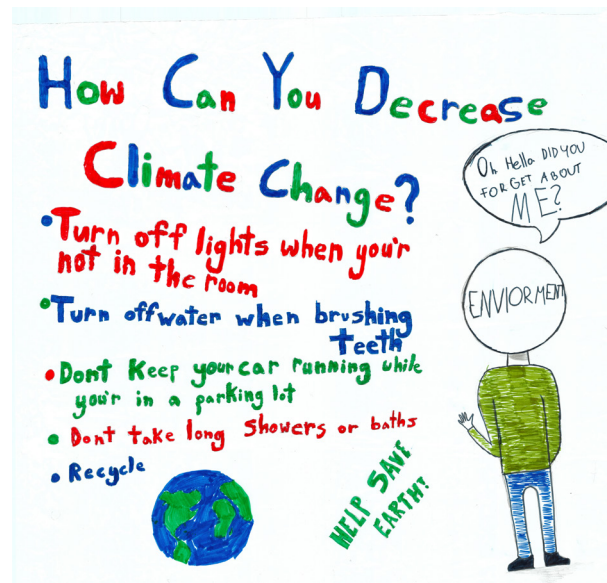 How Can You Decrease
Climate Change?
•Turn off lights when you'r
not in the room
•Turn off water when brushing
teeth
•Dont Keep your car running while
you'r in a parking lot
•Dont take long Showers or baths
•Recycle
HELP SAVE
EARTH!
Oh Hello DID YOU
FOR GET ABOUT
ME?
ENVIORMENT